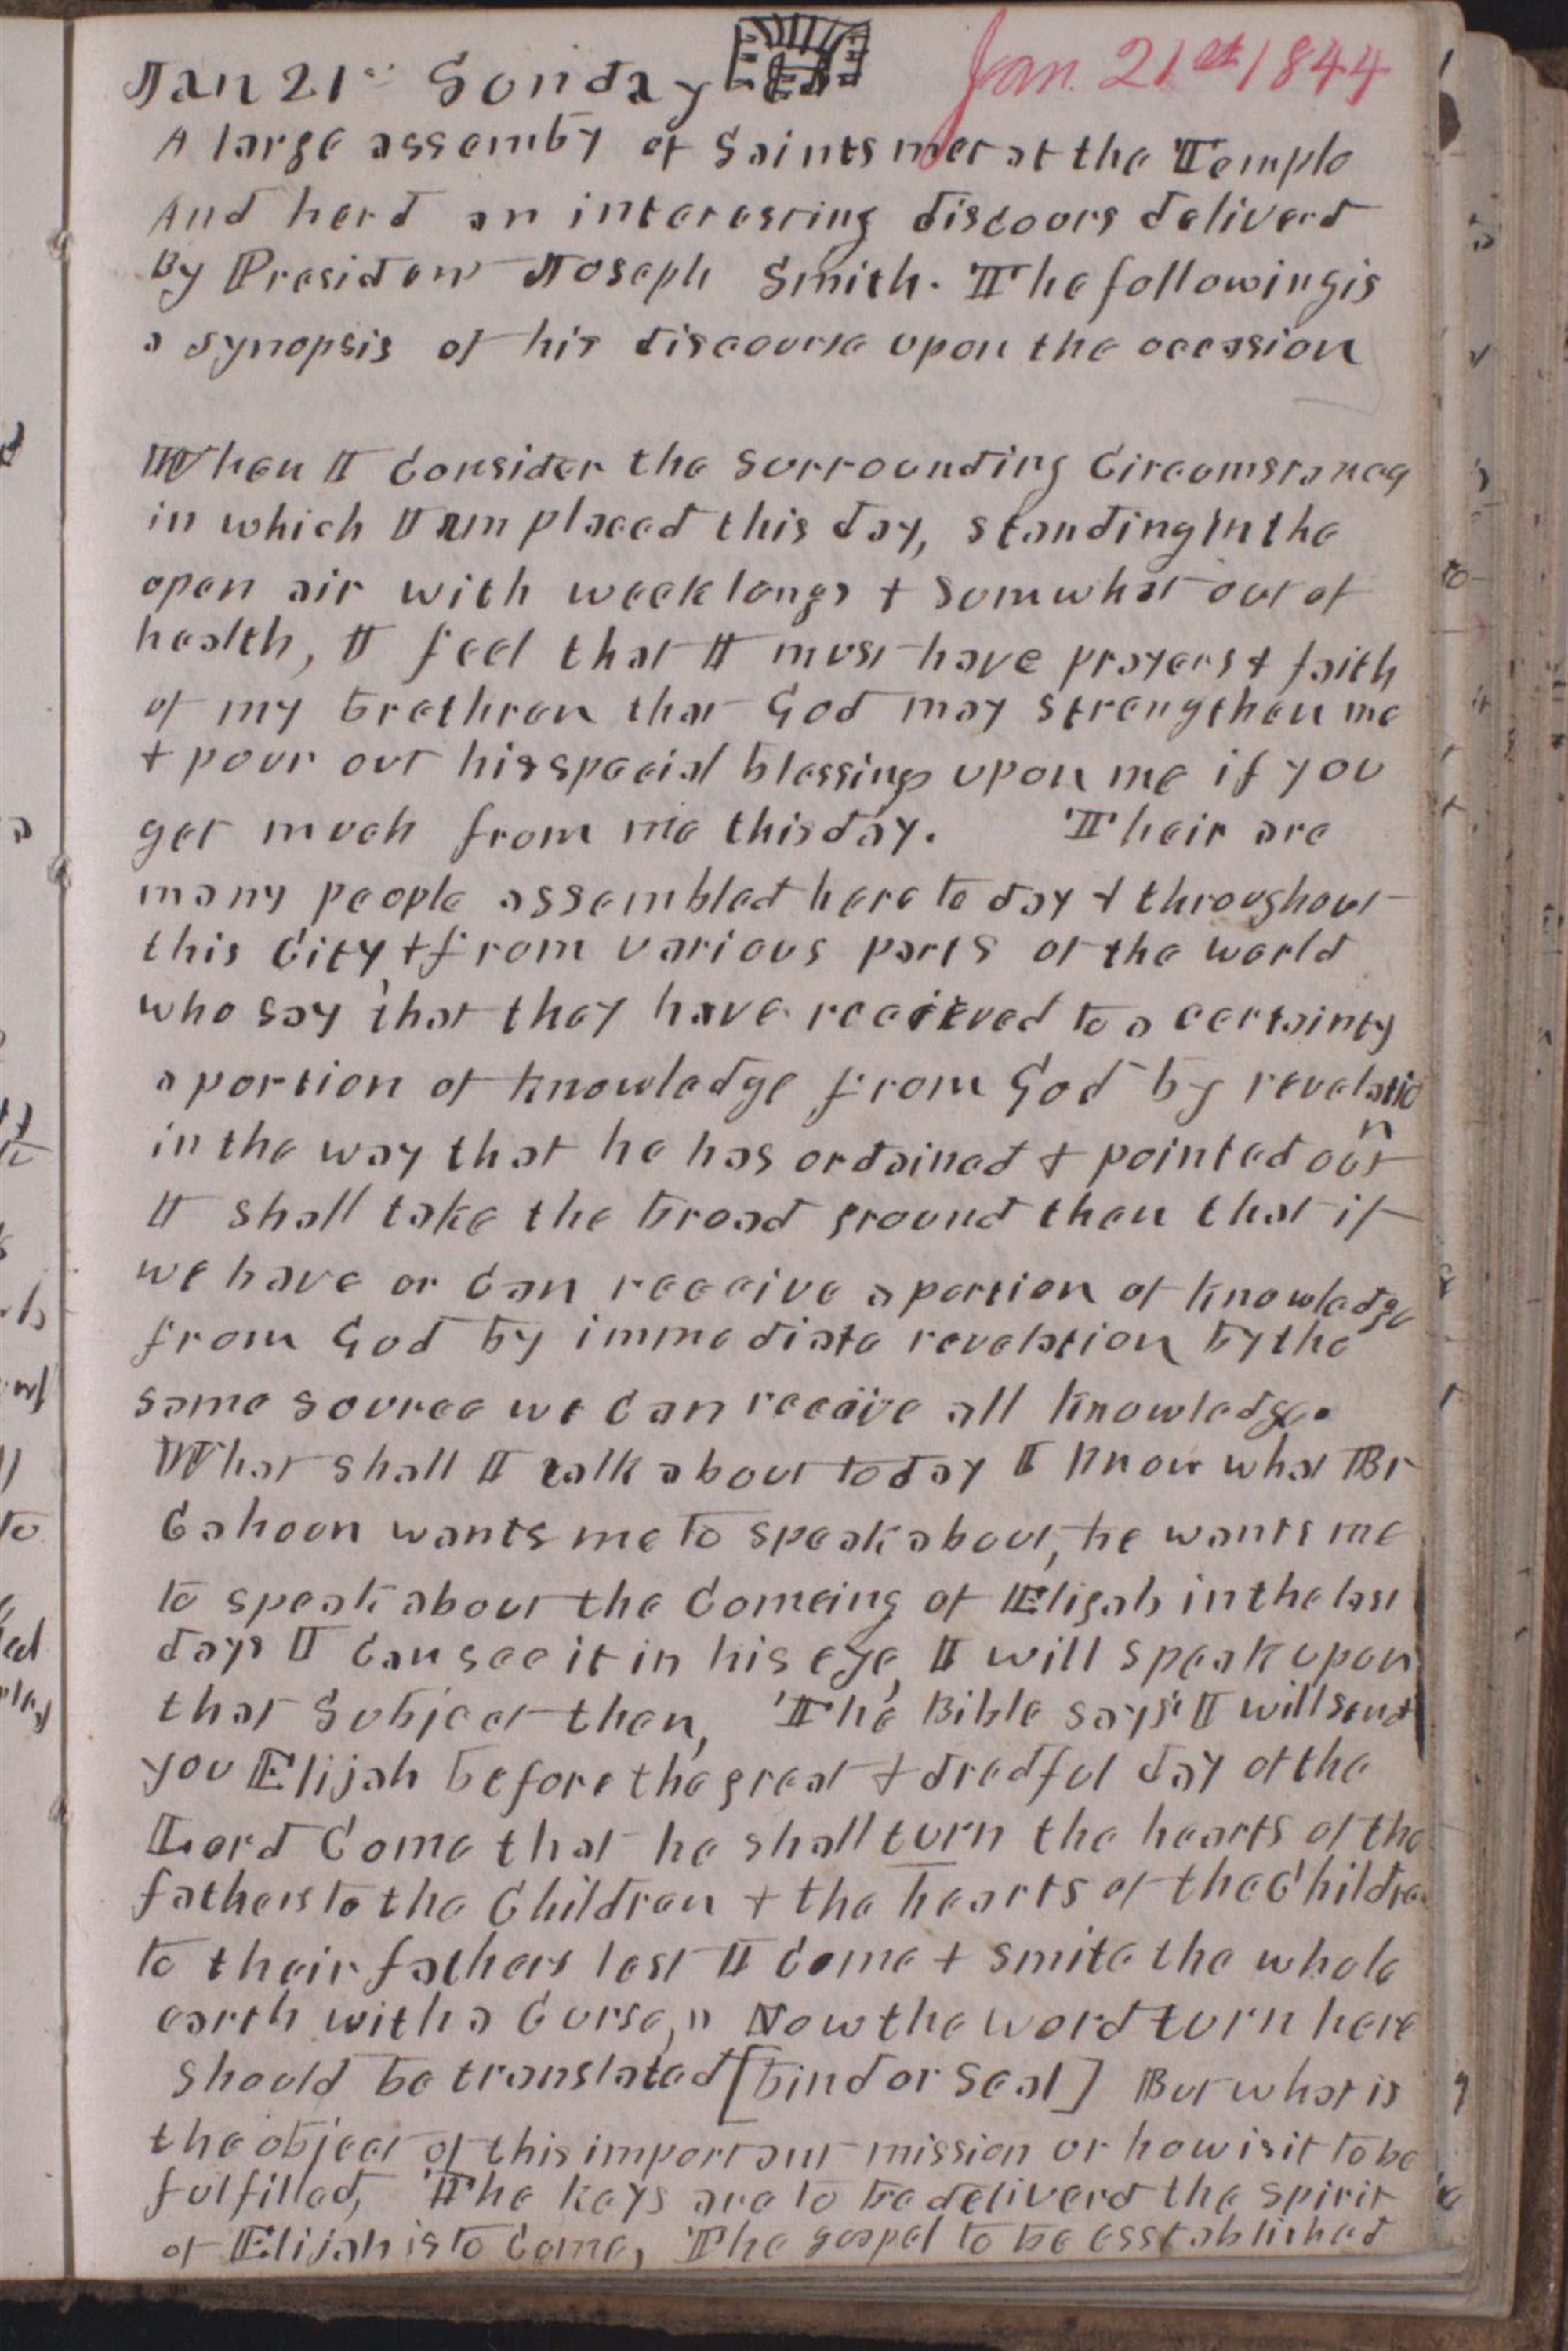 Jan 21st Sunday
Jan. 21st 1844
A large assemby of Saints met at the Temple
And herd an interesting discours deliverd
By President Joseph Smith. The following is
a synopsis of his discourse upon the occasion
When I Consider the surrounding Circumstances
in which I am placed this day, standing in the
open air with week lungs & somwhat out of
health, I feel that I must have prayers & faith
of my brethren that God may strengthen me
& pour out his special blessings upon me if you
get much from me this day. Their are
many people assembled here to day & throughout
this City & from various parts of the world
who say that they have received to a certainty
a portion of knowledge from God by revelation
in the way that he has ordained & pointed out
I shall take the broad ground then that if
we have or Can receive a portion of knowledge
from God by immediate revelation by the
same source we Can receive all knowledge.
What shall I talk about to day I know what Br
Cahoon wants me to speak about, he wants me
to speak about the Comeing of Eligah in the last
days I Can see it in his eye, I will speak upon
that Subject then, The Bible says "I will send
you Elijah before the great & dredful day of the
Lord Come that he shall turn the hearts of the
fathers to the Children & the hearts of the Children
to their fathers lest I Come & smite the whole
earth with a Curse," Now the word turn here
should be translated [bind or seal] But what is
the object of this important mission or how is it to be
fulfilled, The keys are to be deliverd the spirit
of Elijah is to Come, The gospel to be esstablished